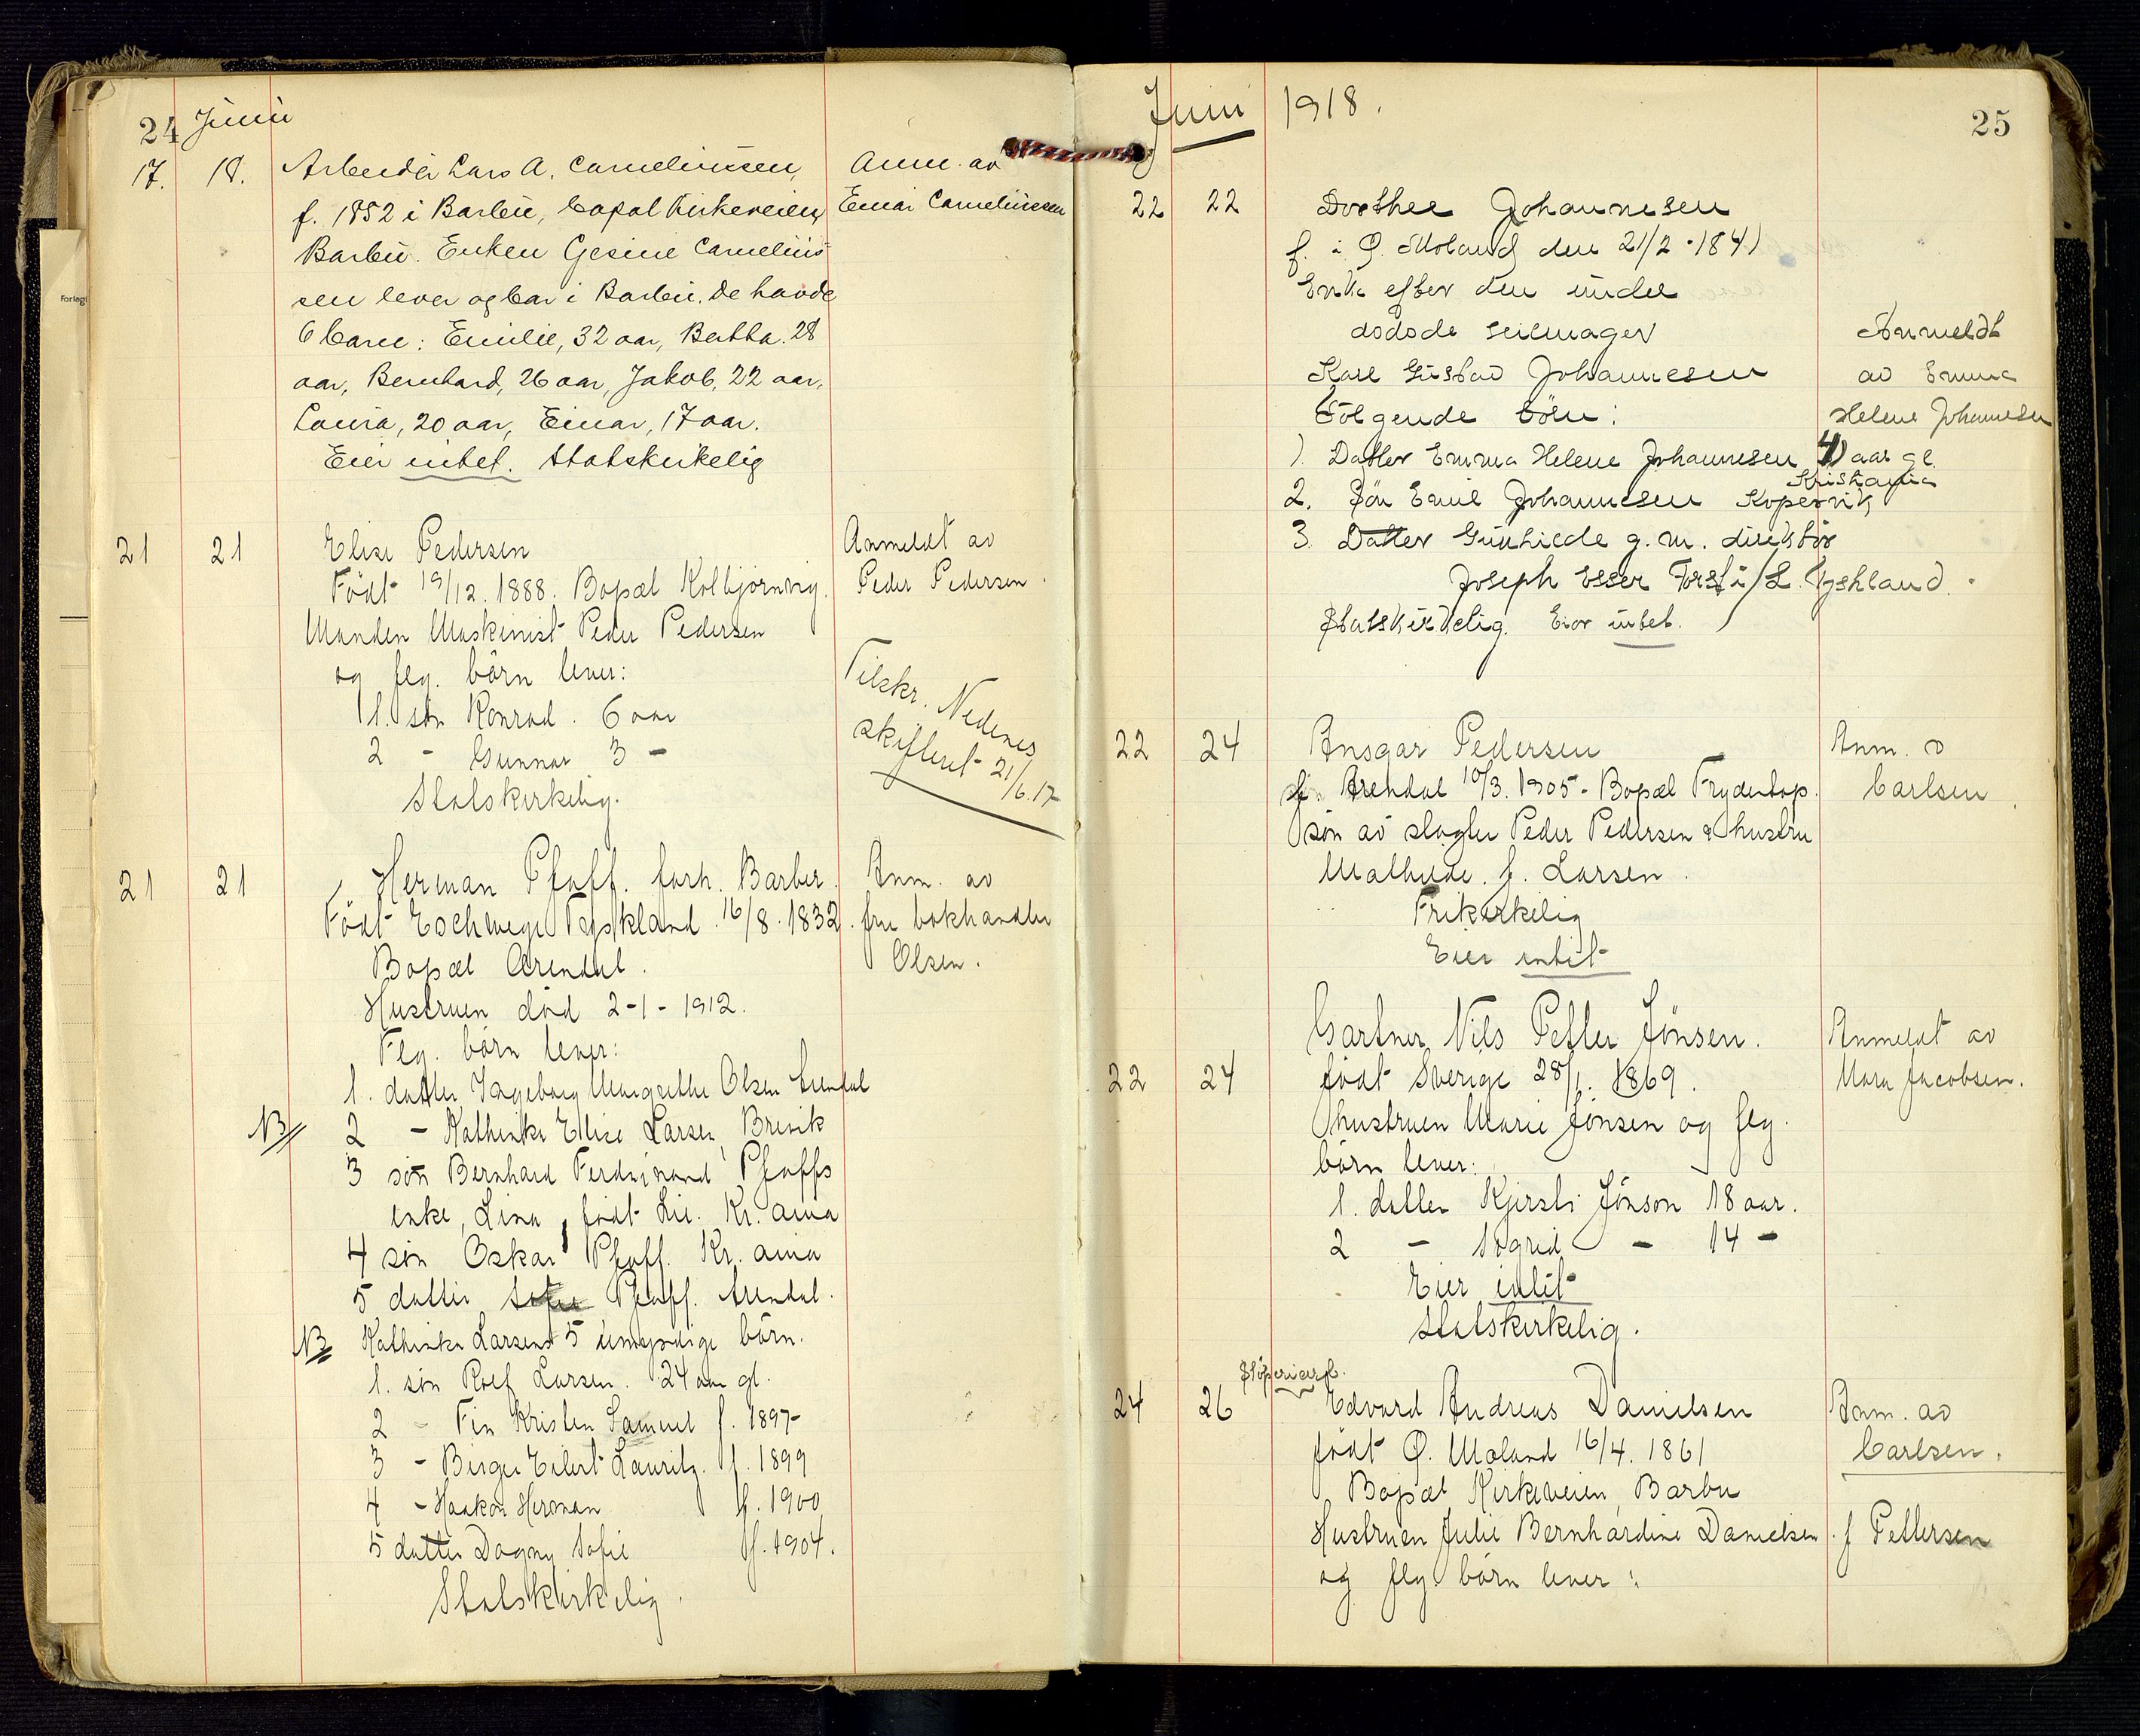 24 Juni
17. 18. Arbeider Lars A. Corneliussen, Anm. av
f. 1852 i Barbu, bopæl Kirkeveien, Einar Corneliussen
Barbu. Enken Gesine Cornelius
sen lever og bor i Barbu. De havde
6 barn: Emilie, 32 aar, Bertha. 28
aar, Bernhard, 26 aar, Jakob, 22 aar,
Laura, 20 aar, Einar, 17 aar.
Eier intet. Statskirkelig
21 21 Elise Pedersen Anmeldt av
Født 19/12. 1888. Bopæl Kolbjørnvig. Peder Pedersen.
Manden Maskinist Peder Pedersen
og flg. börn lever:
1. sön Konrad. 6 aar
2 - Gunnar 3 -
Statskirkelig.
Tilskr. Nedenes
skifteret 21/6.17
21 21 Herman Pfaff. forh. Barber. Anm. av
Födt Eschwege Tyskland. 16/8. 1832. fru bokhandler
Bopæl Arendal. Olsen.
Hustruen död 2-1-1912.
Flg. börn lever:
1. datter Ingeborg Margrethe Olsen Arendal
NB 2 - Kathinka Elise Larsen, Brevik
3 sön Bernhard Ferdinand Pfaffs
enke, Lina, födt Lie. Kr.ania
4 sön Oskar Pfaff. Kr.ania
5 datter Sofie Pfaff. Arendal.
NB Kathinka Larsens 5 umyndige börn.
1. sön Rolf Larsen. 24 aar gl.
2 - Fin Kristen Samuel f. 1897
3 - Birger Eilert Lauritz. f. 1899
4 - Haakon Herman f. 1900
5 datter Dagny Sofie f. 1904.
Statskirkelig.
Juni 1918. 25
22 22 Dorthee Johannesen
f. i Ø. Moland den 21/2-1841
Enke efter den
dødede seilmager Anmeldt
Karl Gustav Johannesen av Emma
Følgende börn: Helene Johannesen
1. Datter Emma Helene Johannesen 41 aar gl.
Kristania
2. Sön Emil Johannesen Kopervik
3. Datter Gunhilde g. m. direktör
Joseph Esser Forst i/L. Tyskland.
Statskirkelig. Eier intet.
22 24 Ansgar Pedersen Anm. a
f. Arendal 10/3. 1905 - Bopæl Frydentop. Carlsen
sön av slagter Peder Pedersen & hustru
Mathilde. f. Larsen.
Frikirkelig
Eier intet
Gartner Nils Petter Jönsen. Anmeldt av
22 24 födt Sverige 28/1. 1869. Mara Jacobsen.
hustruen Marie Jönsen og flg.
börn lever:
1. datter Kjersti Jönson 18 aar.
2 - Sigrid - 14 -
Eier intet
Statskirkelig.
Støperiarb.
24 26 Edvard Andreas Danielsen Anm. av
födt Ø. Moland 16/4. 1861 Carlsen.
Bopæl Kirkeveien, Barbu
Hustruen Julie Bernhardine Danielsen. f Pettersen
og flg. börn lever: